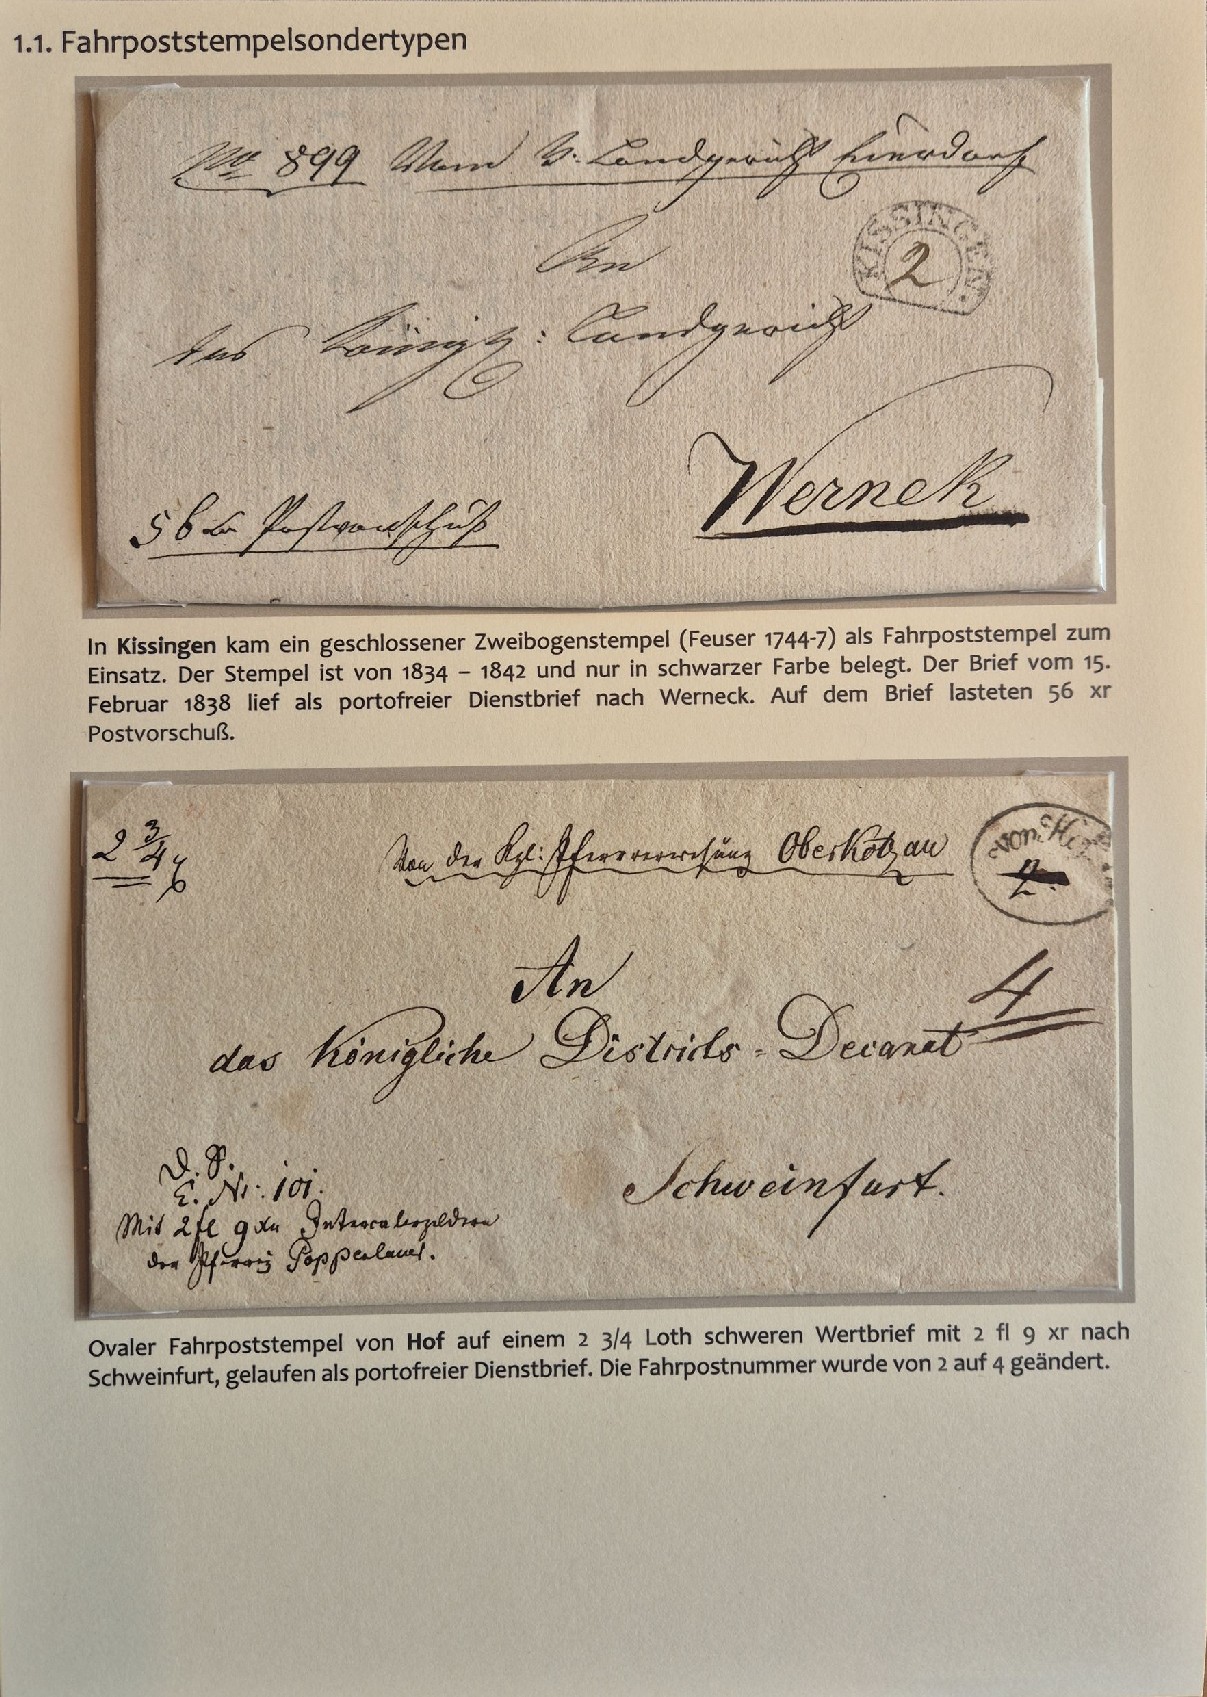 1.1. Fahrpoststempelsondertypen
No 899 Vom K: Landgericht Euerdorf
KISSINGEN.
2
An
das Königl: Landgericht
Werneck
56 xr Postvorschuß
In Kissingen kam ein geschlossener Zweibogenstempel (Feuser 1744-7) als Fahrpoststempel zum
Einsatz. Der Stempel ist von 1834 – 1842 und nur in schwarzer Farbe belegt. Der Brief vom 15.
Februar 1838 lief als portofreier Dienstbrief nach Werneck. Auf dem Brief lasteten 56 xr
Postvorschuß.
2 3/4
Von der Kgl: Pfarrverwesung Oberkotzau
von Hof
2
4
An
das Königliche Districts-Decanat
D. S.
E. Nr: 101.
Schweinfurt.
Mit 2 fl 9 xr Intercalargeldern
der Pfarrei Poppenlauer.
Ovaler Fahrpoststempel von Hof auf einem 2 3/4 Loth schweren Wertbrief mit 2 fl 9 xr nach
Schweinfurt, gelaufen als portofreier Dienstbrief. Die Fahrpostnummer wurde von 2 auf 4 geändert.